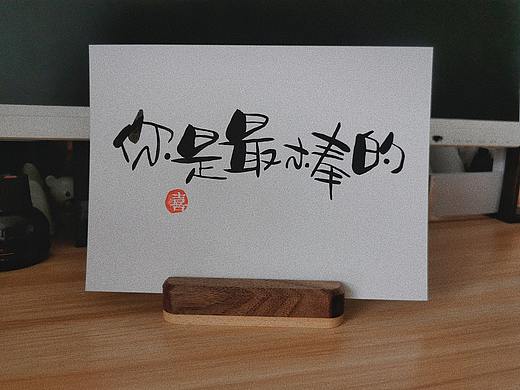 你是最棒的
喜